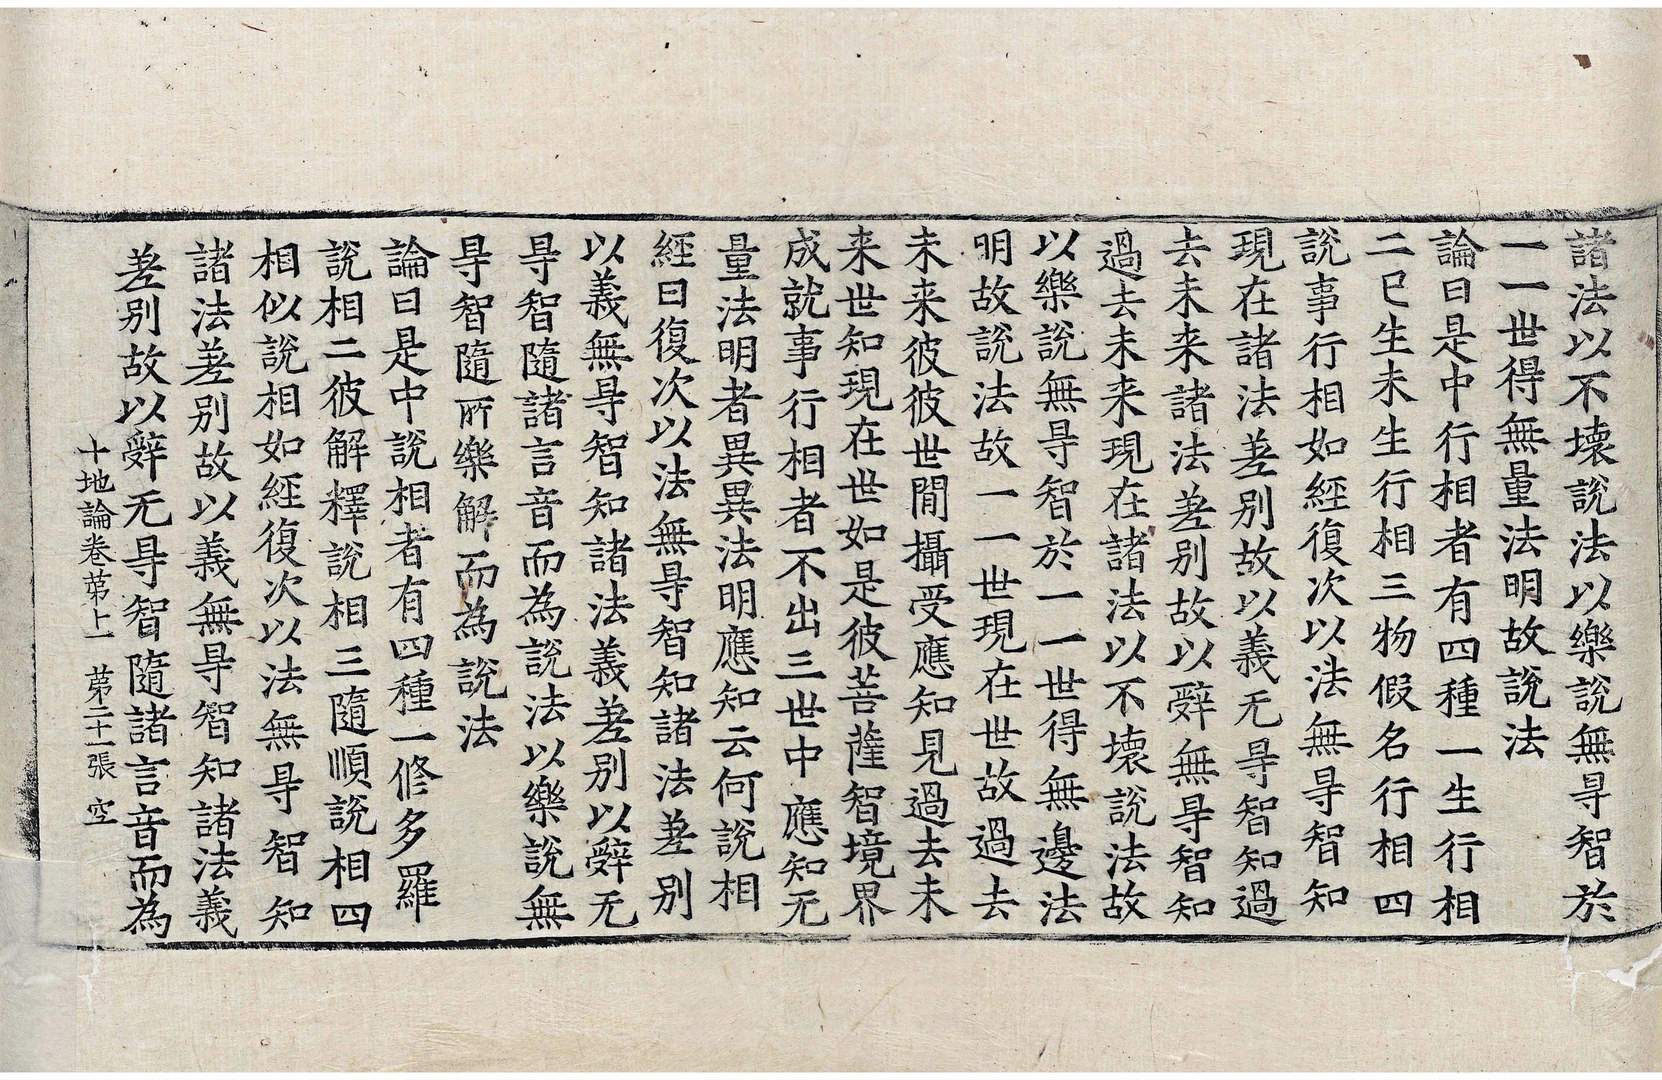 諸法以不壞說法以樂說無㝵智於
一一世得無量法明故說法
論曰是中行相者有四種一生行相
二已生未生行相三物假名行相四
說事行相如經復次以法無㝵智知
現在諸法差别故以義无㝵智知過
去未来諸法差别故以辝無㝵智知
過去未来現在諸法以不壞說法故
以樂說無㝵智於一一世得無邊法
明故說法故一一世現在世故過去
未来彼彼世閒攝受應知見過去未
来世知現在世如是彼菩薩智境界
成就事行相者不出三世中應知无
量法明者異異法明應知云何說相
經曰復次以法無㝵智知諸法差别
以義無㝵智知諸法義差别以辝无
㝵智隨諸言音而為說法以樂說無
㝵智隨所樂解而為說法
論曰是中說相者有四種一修多羅
說相二彼解釋說相三隨順說相四
相似說相如經復次以法無㝵智知
諸法差别故以義無㝵智知諸法義
差别故以辝无㝵智隨諸言音而為
十地論卷苐十一　苐二十一張　空